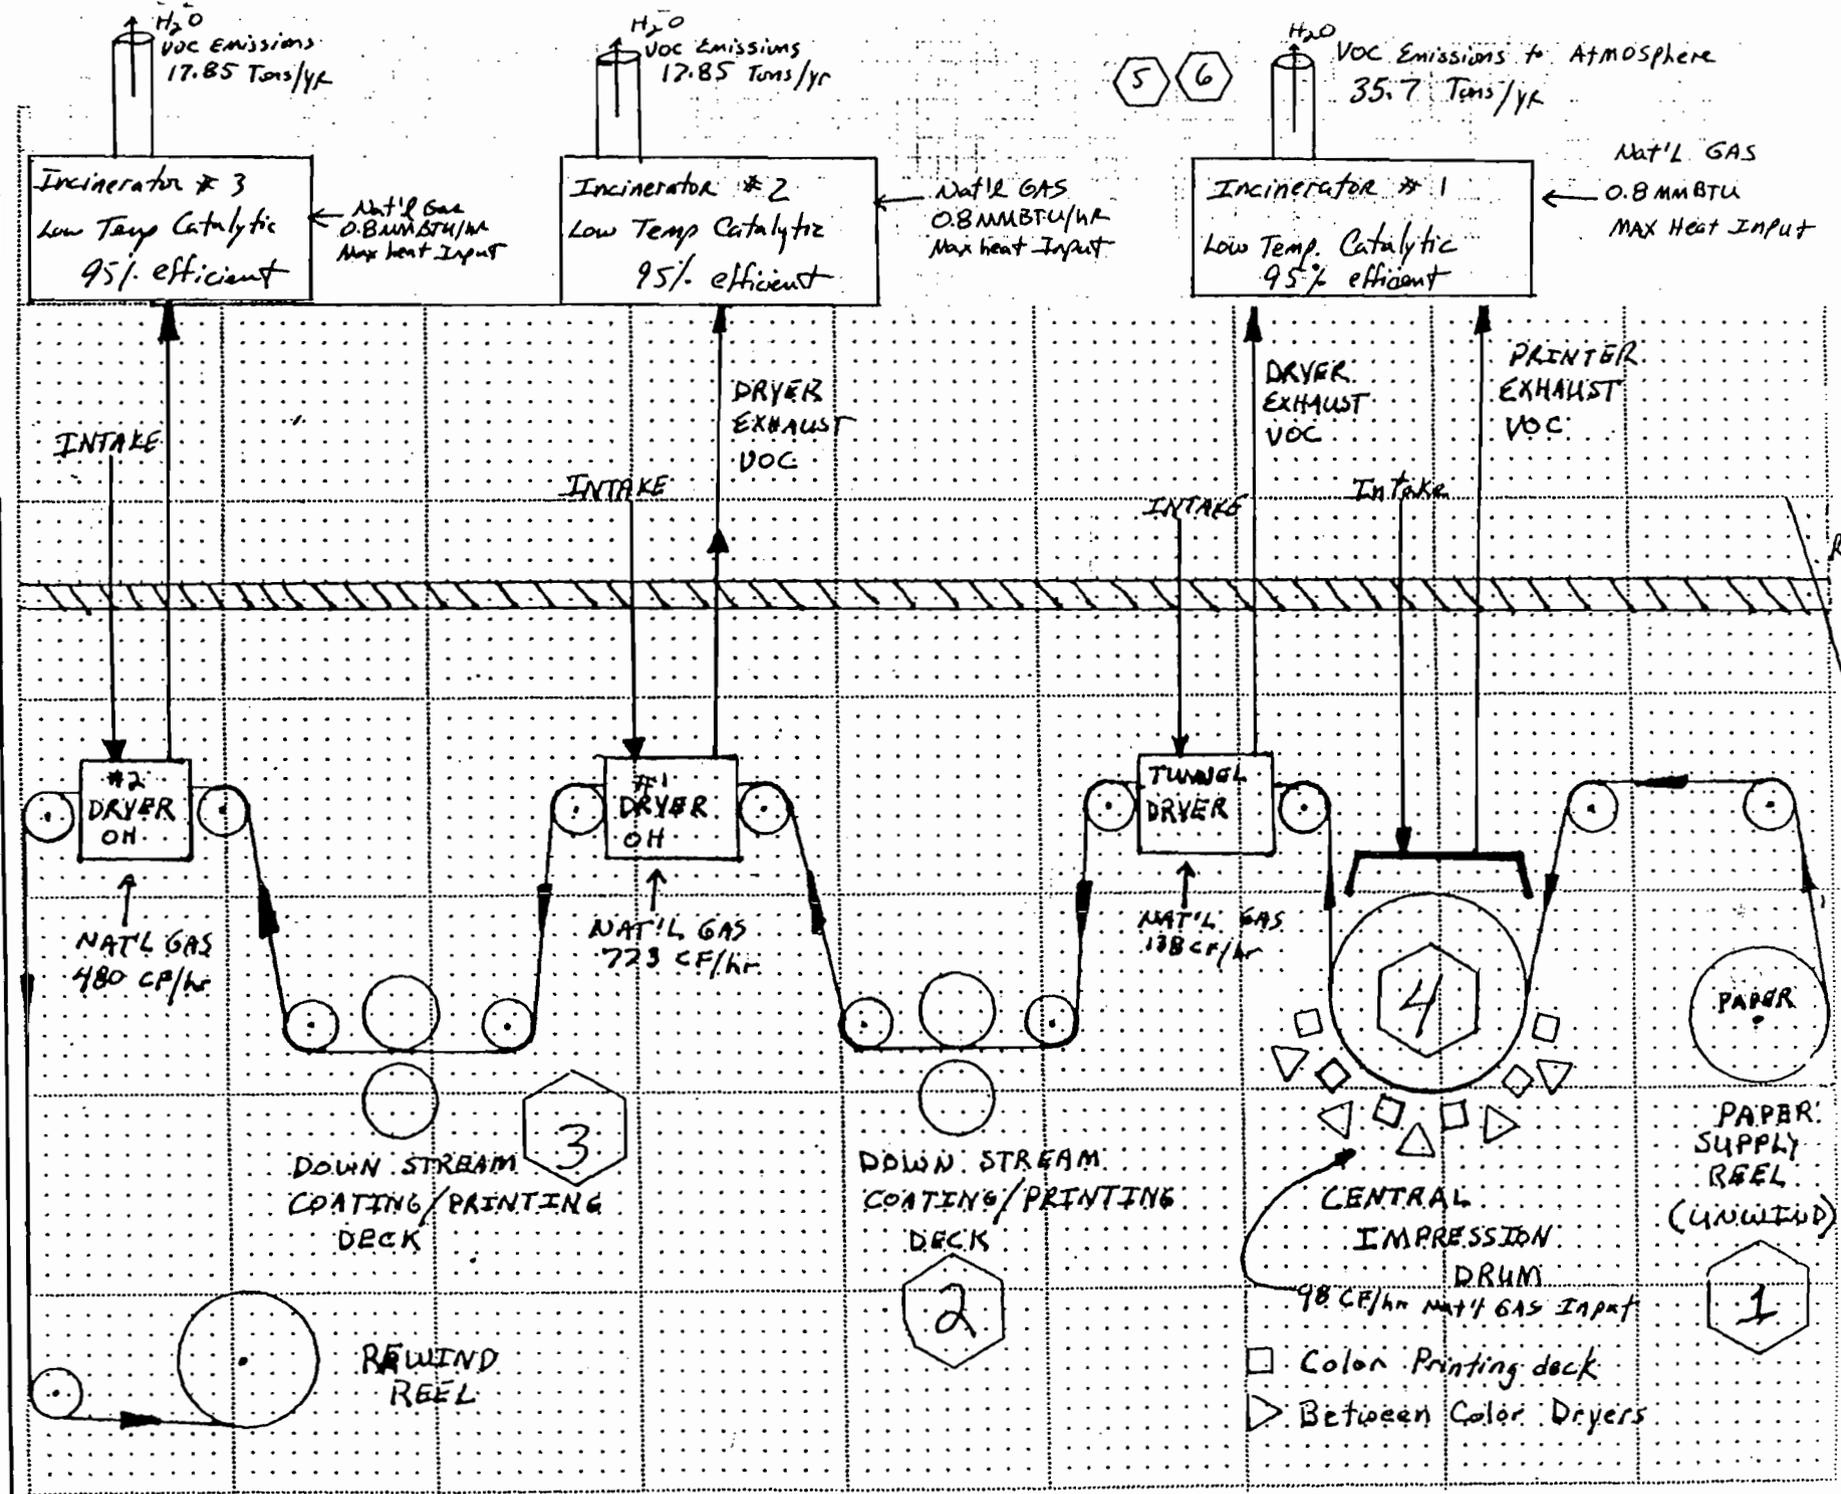 H2O
VOC Emissions
17.85 Tons/yr
H2O
VOC Emissions
17.85 Tons/yr
5
6
H2O
VOC Emissions to Atmosphere
35.7 Tons/yr
Incinerator # 3
Low Temp Catalytic
95% efficient
Nat'l Gas
0.8 MMBTU/HR
Max heat Input
Incinerator # 2
Low Temp Catalytic
95% efficient
Nat'l GAS
0.8 MMBTU/HR
Max heat Input
Incinerator # 1
Low Temp. Catalytic
95% efficient
Nat'L GAS
0.8 MMBTU
MAX Heat Input
INTAKE
DRYER
EXHAUST
VOC
INTAKE
DRYER
EXHAUST
VOC
PRINTER
EXHAUST
VOC
INTAKE
Intake
R
#2
DRYER
OH
#1
DRYER
OH
TUNNEL
DRYER
NAT'L GAS
480 CF/hr
NAT'L GAS
723 CF/hr
NAT'L GAS
138 CF/hr
4
PAPER
3
DOWN STREAM
COATING/PRINTING
DECK
DOWN STREAM
COATING/PRINTING
DECK
2
CENTRAL
IMPRESSION
DRUM
98 CF/hr Nat'l GAS Input
PAPER
SUPPLY
REEL
(UNWIND)
1
REWIND
REEL
Color Printing deck
Between Color Dryers